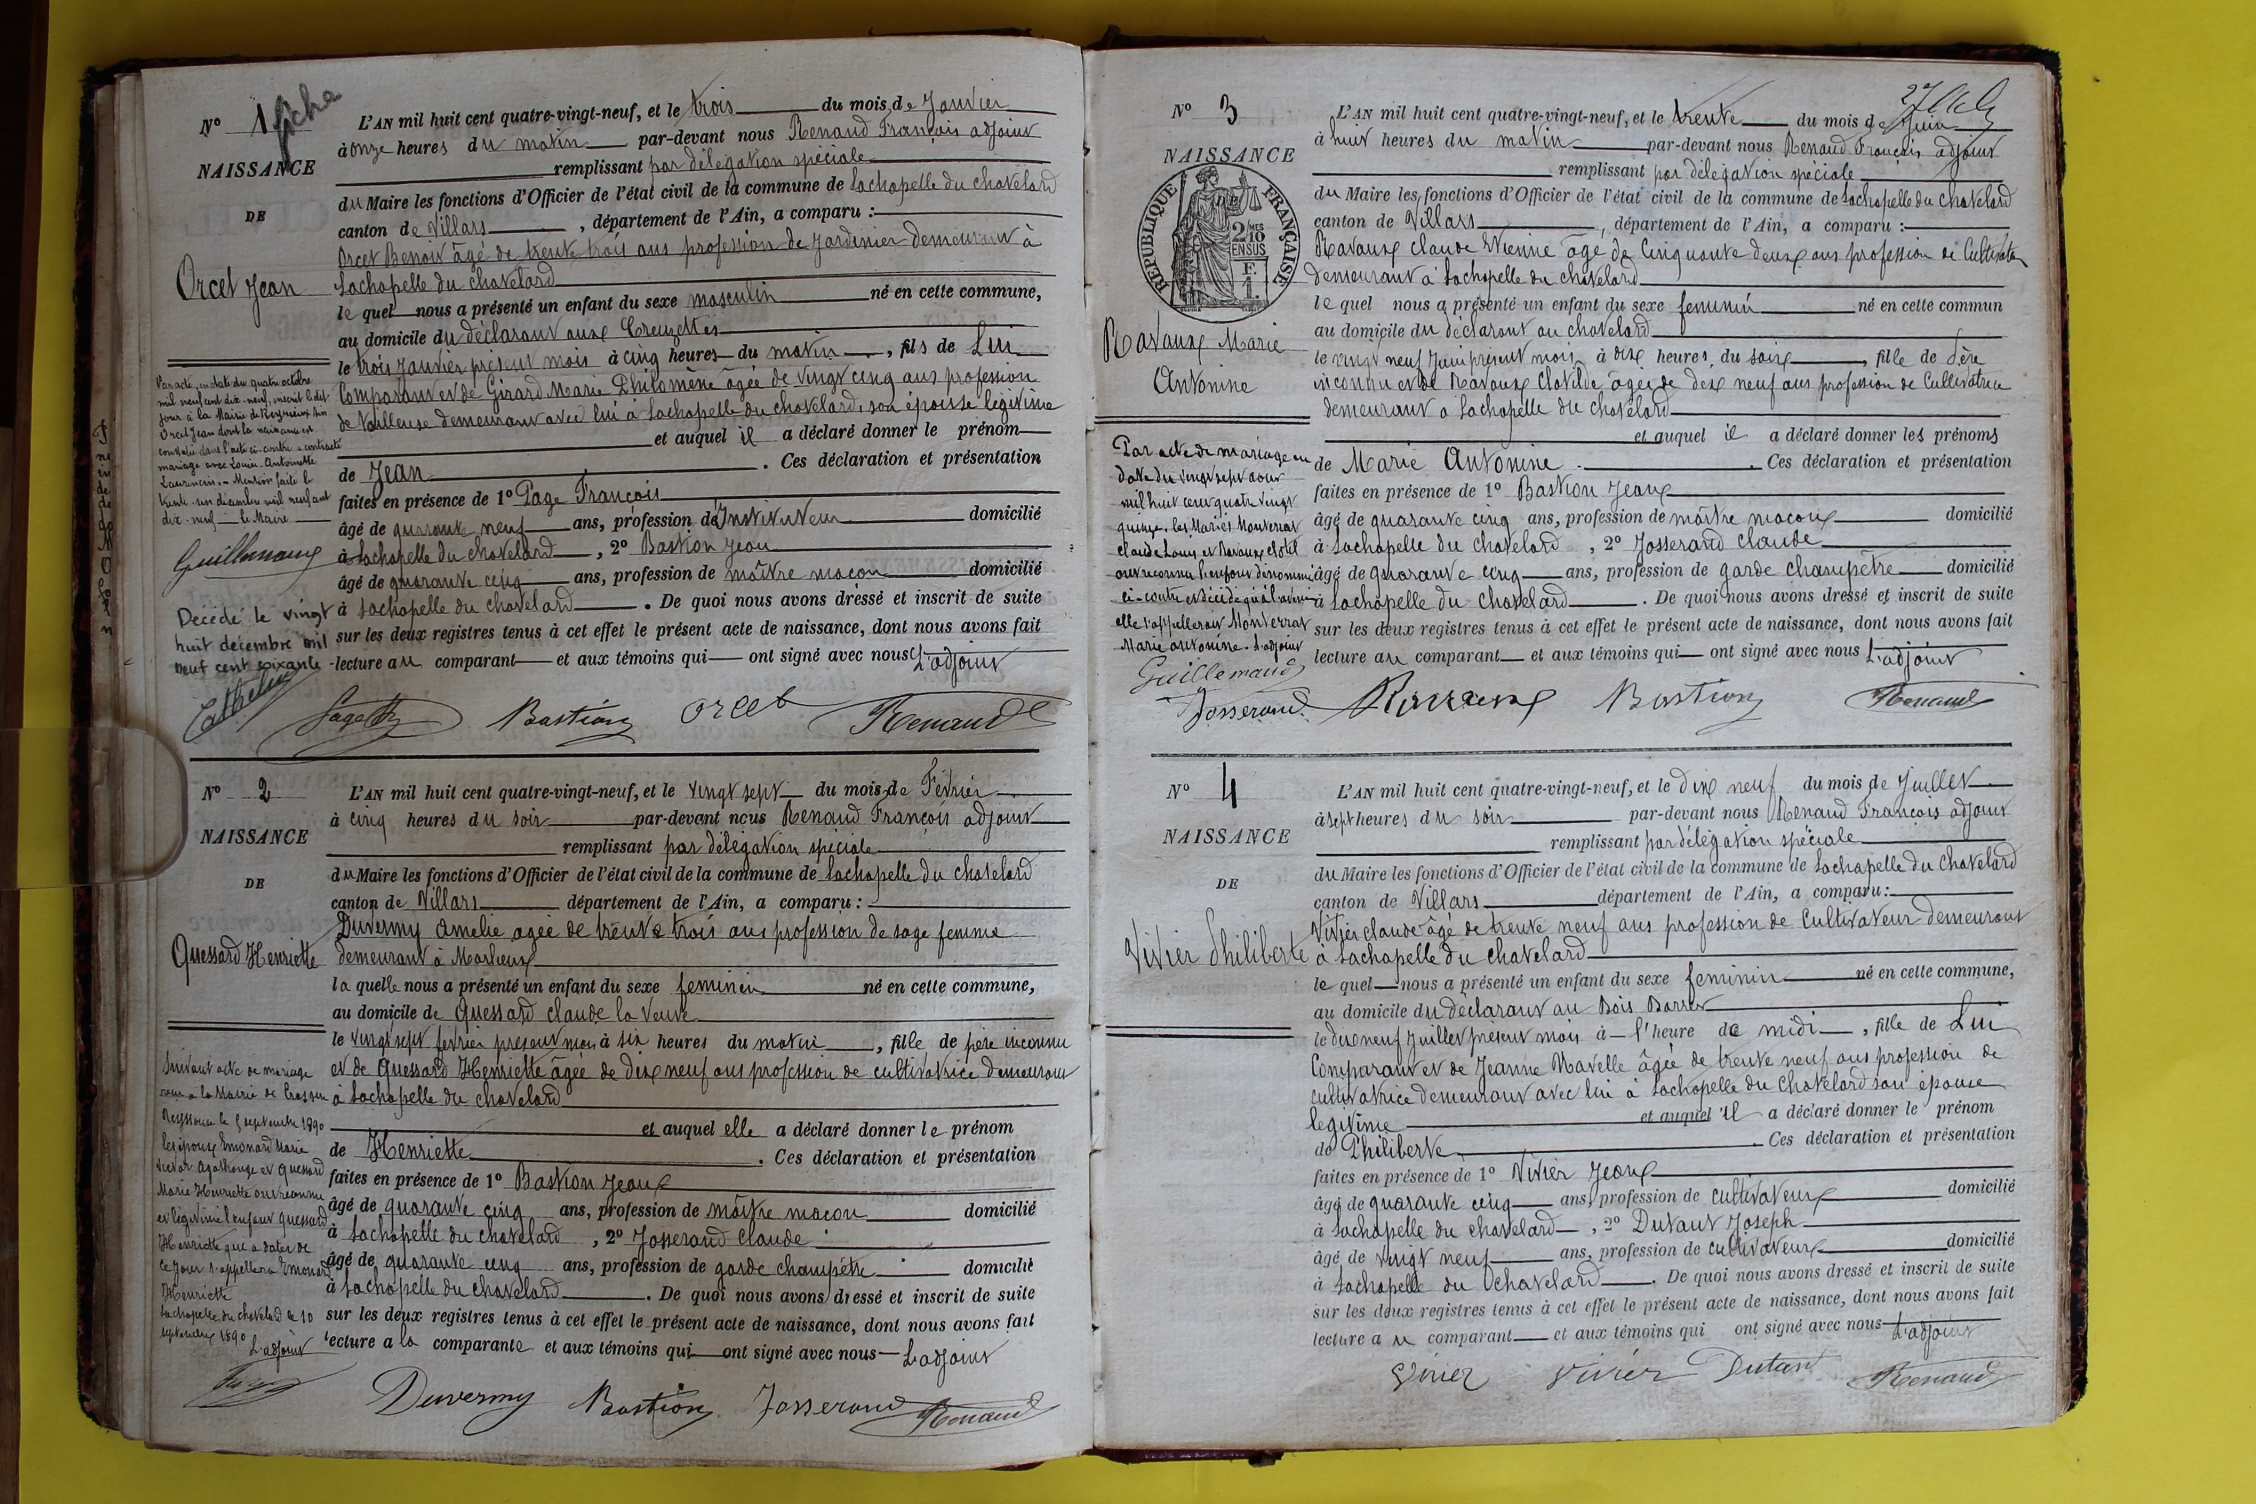 N° 1 fiche
NAISSANCE
DE
Orcet Jean
L'AN mil huit cent quatre-vingt-neuf, et le trois du mois de Janvier
à onze heures du matin par-devant nous Renaud François adjoint
remplissant par délégation spéciale
du Maire les fonctions d'Officier de l'état civil de la commune de Lachapelle du chatelard
canton de Villars, département de l'Ain, a comparu :
Orcet Benoit âgé de trente trois ans profession de Jardinier demeurant à
Lachapelle du chatelard
le quel nous a présenté un enfant du sexe masculin né en cette commune,
au domicile du déclarant aux Creuzettes
le trois Janvier présent mois à cinq heures du matin, fils de Lui
Comparant et de Girard Marie Philomène âgée de vingt cinq ans profession
de tailleuse demeurant avec lui à Lachapelle du chatelard, son épouse légitime
et auquel il a déclaré donner le prénom
de Jean. Ces déclaration et présentation
faites en présence de 1° Page François
âgé de quarante neuf ans, profession d'Instituteur domicilié
à Lachapelle du chatelard, 2° Bastion Jean
âgé de quarante cinq ans, profession de maître maçon domicilié
à Lachapelle du chatelard. De quoi nous avons dressé et inscrit de suite
sur les deux registres tenus à cet effet le présent acte de naissance, dont nous avons fait
lecture au comparant et aux témoins qui ont signé avec nous L'adjoint
Par acte en date du quatre octobre
mil neuf cent dix-neuf, inscrit le dit
jour à la Mairie de
Orcet Jean dont la naissance est
constatée dans l'acte ci-contre a contracté
mariage avec Louise Antoinette
Laurencin. Mention faite le
trente-un décembre mil neuf cent
dix-neuf le Maire
Guillemaud
Décédé le vingt
huit décembre mil
neuf cent soixante
Page Bastion Orcet Renaud
N° 2
NAISSANCE
DE
Quessard Henriette
L'AN mil huit cent quatre-vingt-neuf, et le vingt sept du mois de Février
à cinq heures du soir par-devant nous Renaud François adjoint
remplissant par délégation spéciale
du Maire les fonctions d'Officier de l'état civil de la commune de Lachapelle du chatelard
canton de Villars département de l'Ain, a comparu :
Duvermy Amelie agée de trente trois ans profession de sage femme
demeurant à Marlieux
la quelle nous a présenté un enfant du sexe feminin né en cette commune,
au domicile de Quessard claude la veuve
le vingt sept février présent mois à six heures du matin, fille de père inconnu
et de Quessard Henriette âgée de dix neuf ans profession de cultivatrice demeurant
à Lachapelle du chatelard
et auquel elle a déclaré donner le prénom
de Henriette. Ces déclaration et présentation
faites en présence de 1° Bastion Jean
âgé de quarante cinq ans, profession de maître maçon domicilié
à Lachapelle du chatelard, 2° Josserand Claude
âgé de quarante cinq ans, profession de garde champêtre domicilié
à Lachapelle du chatelard. De quoi nous avons dressé et inscrit de suite
sur les deux registres tenus à cet effet le présent acte de naissance, dont nous avons fait
lecture a la comparante et aux témoins qui ont signé avec nous L'adjoint
Suivant acte de mariage
reçu a la Mairie de Cras sur
Reyssouze le 5 septembre 1890
les époux Emonard Marie
et Quessard
Marie Henriette ont reconnu
et légitimé l'enfant Quessard
Henriette qui a dater de
ce jour s'appellera Emonard
Henriette
Lachapelle du chatelard le 10
septembre 1890
L'adjoint
Duvermy Bastion Josserand Renaud
27
N° 3
NAISSANCE
REPUBLIQUE FRANÇAISE
2/10 MES
EN SUS
F. 1.
Ravaux Marie
Antonine
L'AN mil huit cent quatre-vingt-neuf, et le trente du mois de Juin
à huit heures du matin par-devant nous Renaud François adjoint
remplissant par délégation spéciale
du Maire les fonctions d'Officier de l'état civil de la commune de Lachapelle du chatelard
canton de Villars, département de l'Ain, a comparu :
Ravaux claude Etienne âgé de Cinquante deux ans profession de Cultivateur
demeurant à Lachapelle du chatelard
le quel nous a présenté un enfant du sexe feminin né en cette commun
au domicile du déclarant au chatelard
le vingt neuf Juin présent mois à dix heures du soir, fille de père
inconnu et de Ravaux Clotilde âgée de dix neuf ans profession de Cultivatrice
demeurant à Lachapelle du chatelard
et auquel il a déclaré donner les prénoms
de Marie Antonine. Ces déclaration et présentation
faites en présence de 1° Bastion Jean
âgé de quarante cinq ans, profession de maître maçon domicilié
à Lachapelle du chatelard, 2° Josserand Claude
âgé de quarante cinq ans, profession de garde champêtre domicilié
à Lachapelle du chatelard. De quoi nous avons dressé et inscrit de suite
sur les deux registres tenus à cet effet le présent acte de naissance, dont nous avons fait
lecture au comparant et aux témoins qui ont signé avec nous L'adjoint
Par acte de mariage en
date du vingt sept aout
mil huit cent quatre vingt
quinze. les Mariés Monterrat
Claude Louis et Ravaux Clotil
ont reconnu l'enfant dénommé
ci-contre et décidé qu'à l'avenir
elle s'appellerait Monterrat
Marie Antonine. L'adjoint
Guillemaud
Josserand Ravaux Bastion Renaud
N° 4
NAISSANCE
DE
Vivier Philiberte
L'AN mil huit cent quatre-vingt-neuf, et le dix neuf du mois de Juillet
à sept heures du soir par-devant nous Renaud François adjoint
remplissant par délégation spéciale
du Maire les fonctions d'Officier de l'état civil de la commune de Lachapelle du chatelard
canton de Villars département de l'Ain, a comparu :
Vivier claude âgé de trente neuf ans profession de Cultivateur demeurant
à Lachapelle du chatelard
le quel nous a présenté un enfant du sexe feminin né en cette commune,
au domicile du déclarant au Bois Barret
le dix neuf Juillet présent mois à l'heure de midi, fille de Lui
Comparant et de Jeanne Navelle âgée de trente neuf ans profession de
cultivatrice demeurant avec lui à Lachapelle du chatelard son épouse
légitime et auquel il a déclaré donner le prénom
de Philiberte. Ces déclaration et présentation
faites en présence de 1° Vivier Jean
âgé de quarante cinq ans, profession de cultivateur domicilié
à Lachapelle du chatelard, 2° Dutant Joseph
âgé de vingt neuf ans, profession de cultivateur domicilié
à Lachapelle du chatelard. De quoi nous avons dressé et inscrit de suite
sur les deux registres tenus à cet effet le présent acte de naissance, dont nous avons fait
lecture au comparant et aux témoins qui ont signé avec nous L'adjoint
Vivier Vivier Dutant Renaud